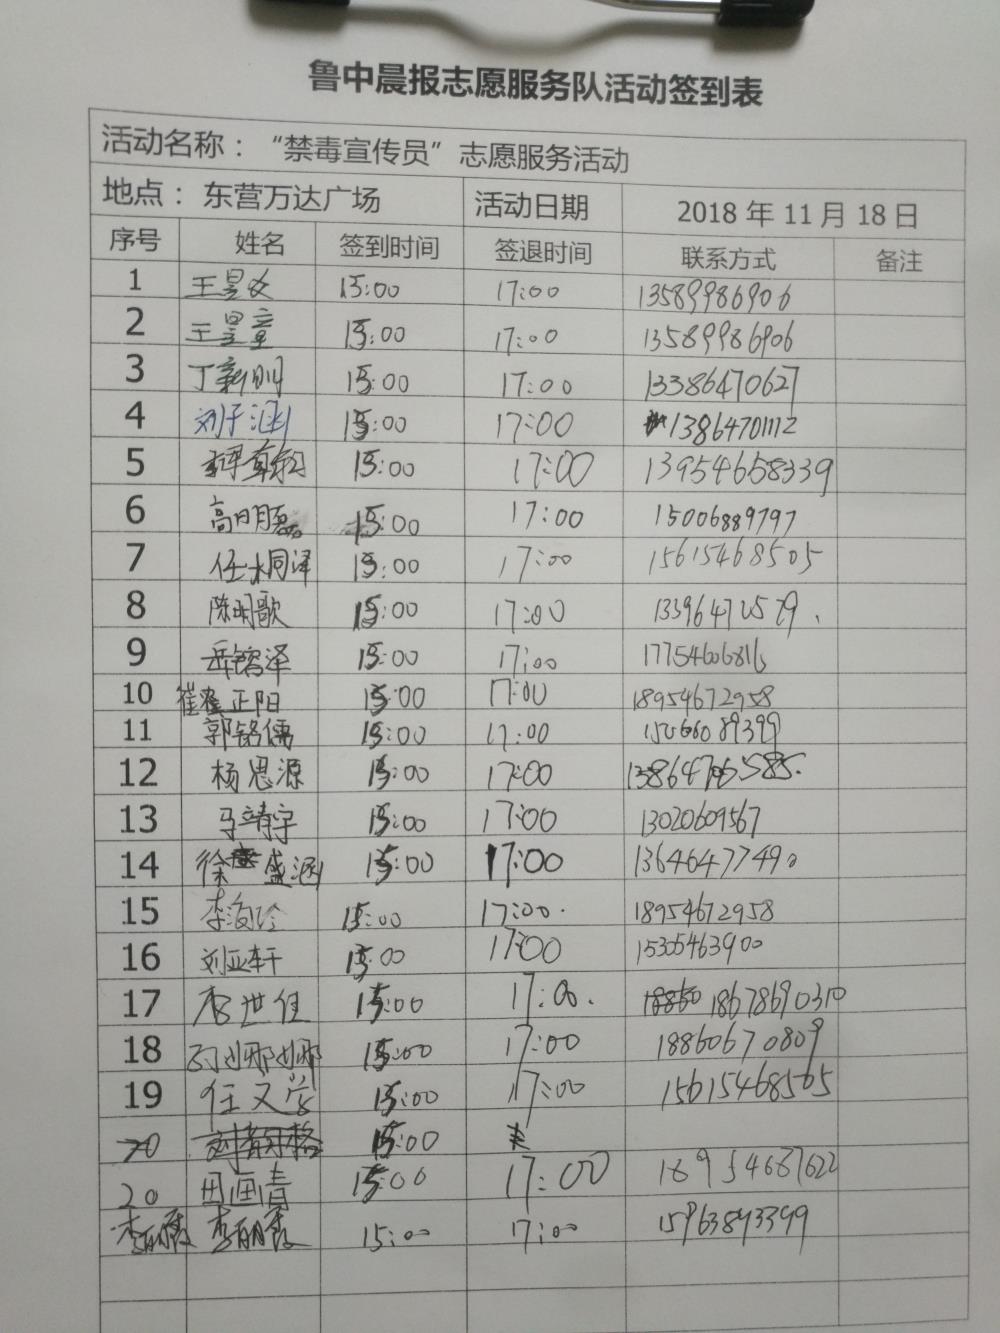 鲁中晨报志愿服务队活动签到表
活动名称：“禁毒宣传员”志愿服务活动
地点：东营万达广场 活动日期 2018年11月18日
序号 姓名 签到时间 签退时间 联系方式 备注
1 王昱文 15:00 17:00 13589986906
2 王昱童 15:00 17:00 13589986906
3 丁新刚 15:00 17:00 13386470627
4 刘子涵 15:00 17:00 13864701112
5 15:00 17:00 13954658339
6 高明磊 15:00 17:00 15006889797
7 任炳泽 15:00 17:00 15615468505
8 陈明歌 15:00 17:00
9 岳铭泽 15:00 17:00 17754606816
10 崔正阳 15:00 17:00 18954672958
11 郭铭儒 15:00 17:00 15066089399
12 杨思源 15:00 17:00
13 马靖宇 15:00 17:00 13020609567
14 徐盛涵 15:00 17:00 13646477490
15 15:00 17:00. 18954672958
16 刘亚轩 15:00 17:00 15305463900
17 李世佳 15:00 17:00. 18678690310
18 15:00 17:00 18860670809
19 任文学 15:00 17:00 15615468565
20 15:00
20 田画青 15:00 17:00 18954687622
李丽霞 李丽霞 15:00 17:00 15963893399